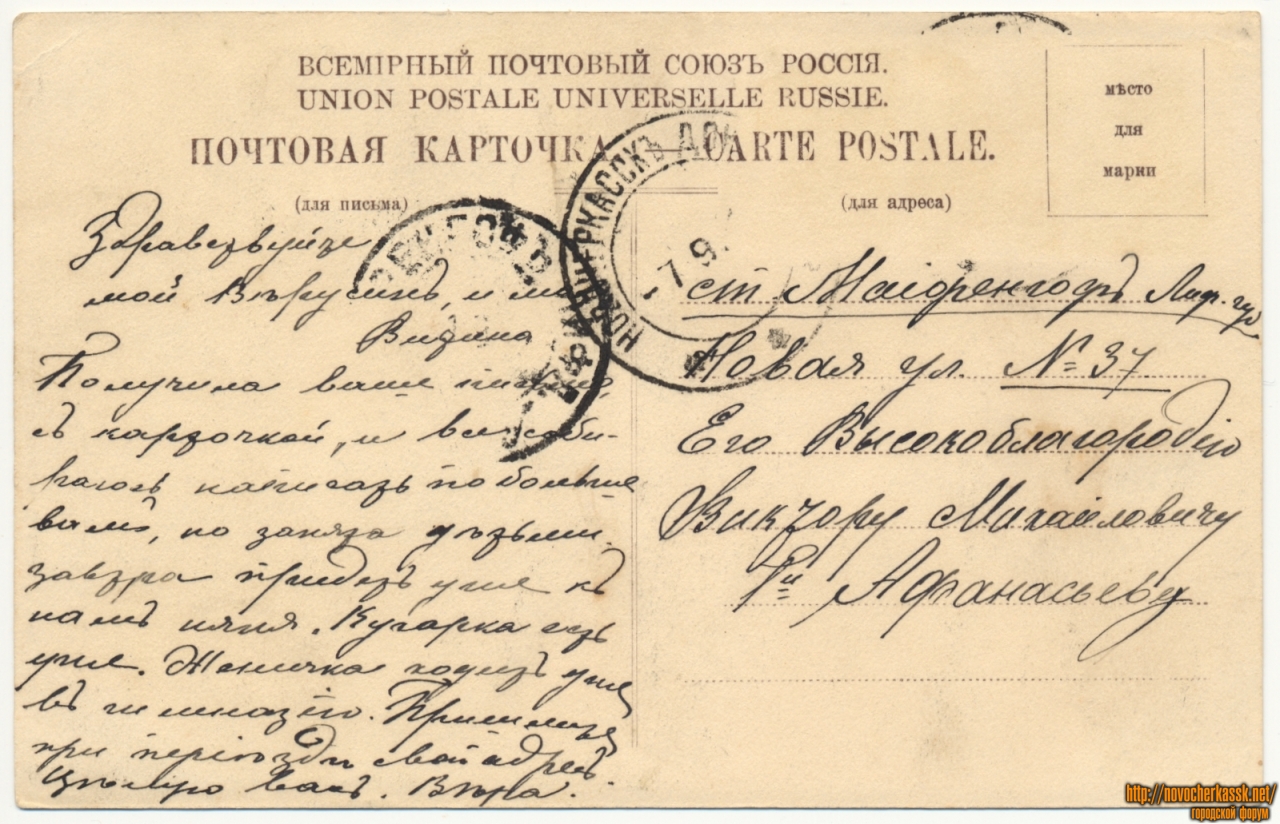 ВСЕМІРНЫЙ ПОЧТОВЫЙ СОЮЗЪ РОССІЯ.
UNION POSTALE UNIVERSELLE RUSSIE.
ПОЧТОВАЯ КАРТОЧКА — CARTE POSTALE.
мѣсто
для
марки
(для письма)
(для адреса)
НОВОЧЕРКАССКЪ ДОН
7 9.
Здравствуйте
мой Вѣрусикъ, и
Получила ваше
съ карточкой, и все соби-
раюсь написать побольше
вамъ, но занята дѣтьми.
завтра придетъ уже къ
намъ няня. Кухарка есть
уже. Женичка ходитъ уже
въ гимназію. Пришлите
при переѣздѣ свой адресъ.
Цѣлую васъ. Вѣра.
ст Маіоренгофъ Лиф. губ
Новая ул. № 37
Его Высокоблагородію
Виктору Михайловичу
Гⁿ Афанасьеву
http://novocherkassk.net/
городской форум